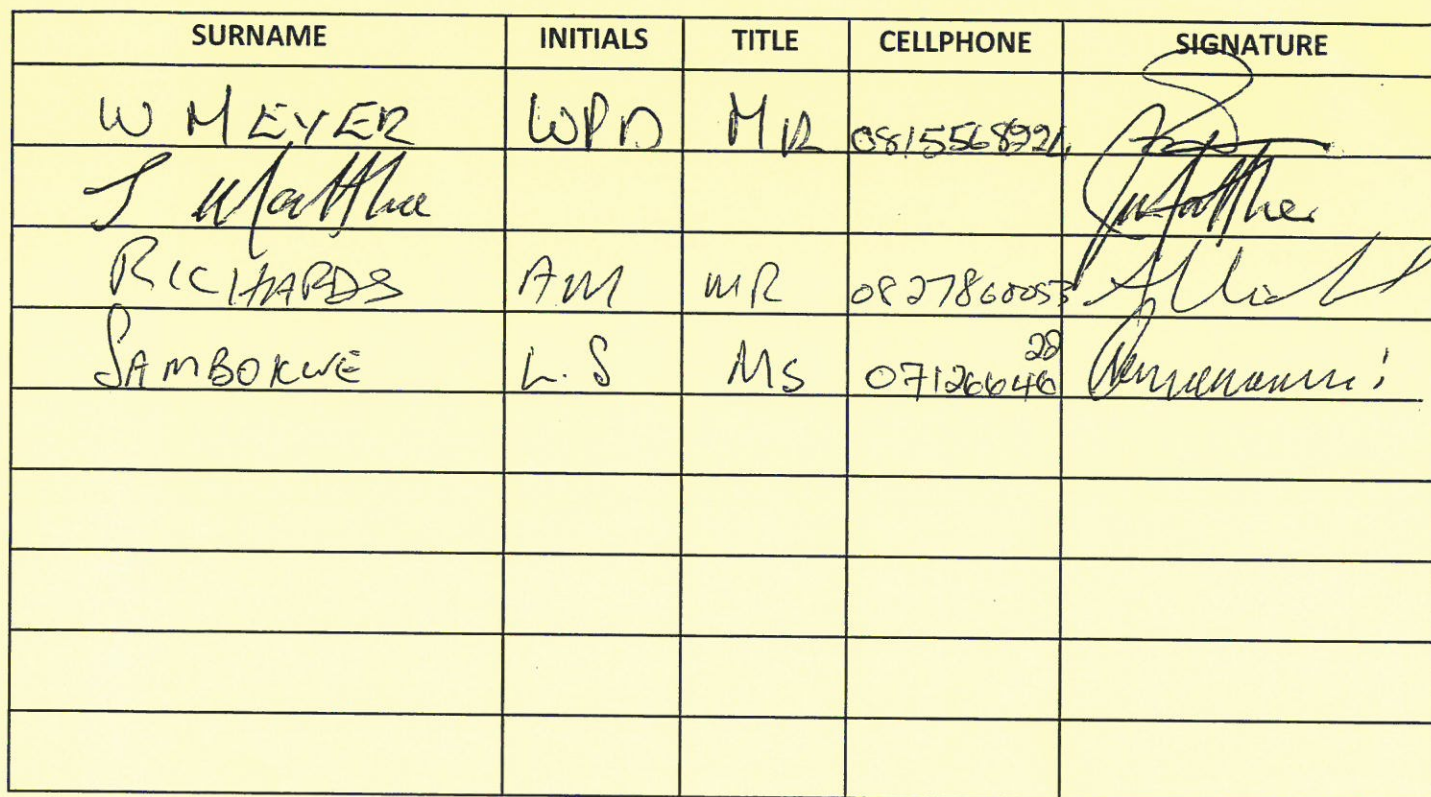 SURNAME INITIALS TITLE CELLPHONE SIGNATURE
W MEYER WPD MR
J
RICHARDS AM MR 0827860053
SAMBOKWE L.S Ms 0712664628